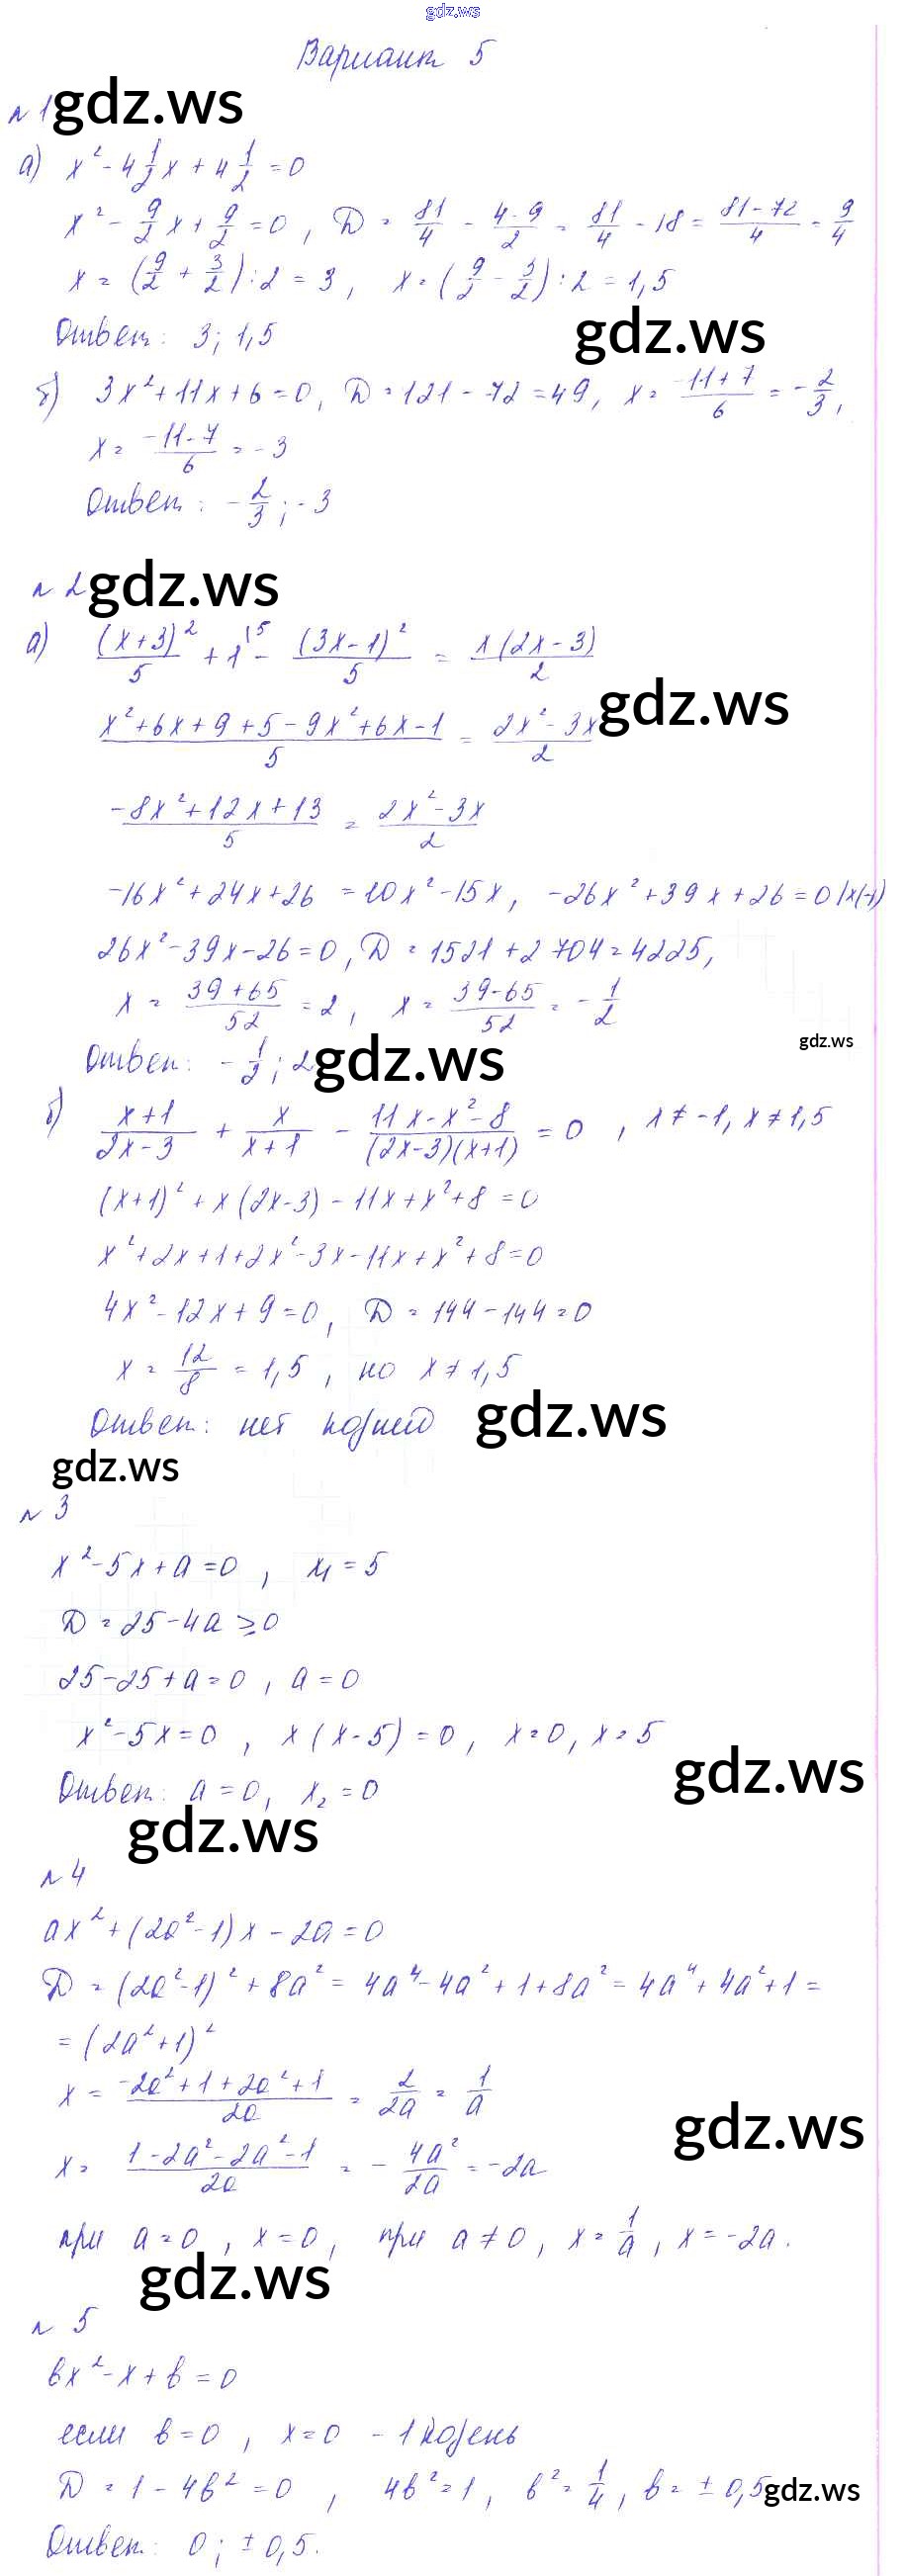 gdz.ws
Вариант 5
№ 1 gdz.ws
а) x² - 4 1/2 x + 4 1/2 = 0
x² - 9/2 x + 9/2 = 0, D = 81/4 - 4·9/2 = 81/4 - 18 = (81-72)/4 = 9/4
x = (9/2 + 3/2) : 2 = 3, x = (9/2 - 3/2) : 2 = 1,5
Ответ: 3; 1,5
gdz.ws
б) 3x² + 11x + 6 = 0, D = 121 - 72 = 49, x = (-11+7)/6 = -2/3,
x = (-11-7)/6 = -3
Ответ: -2/3; -3
№ 2 gdz.ws
а) (x+3)²/5 + 1^(5 - (3x-1)²/5 = x(2x-3)/2
(x²+6x+9+5-9x²+6x-1)/5 = (2x²-3x)/2
gdz.ws
(-8x²+12x+13)/5 = (2x²-3x)/2
-16x² + 24x + 26 = 10x² - 15x, -26x² + 39x + 26 = 0 |x(-1)
26x² - 39x - 26 = 0, D = 1521 + 2704 = 4225,
x = (39+65)/52 = 2, x = (39-65)/52 = -1/2
gdz.ws
Ответ: -1/2; 2 gdz.ws
б) (x+1)/(2x-3) + x/(x+1) - (11x-x²-8)/((2x-3)(x+1)) = 0, x ≠ -1, x ≠ 1,5
(x+1)² + x(2x-3) - 11x + x² + 8 = 0
x² + 2x + 1 + 2x² - 3x - 11x + x² + 8 = 0
4x² - 12x + 9 = 0, D = 144 - 144 = 0
x = 12/8 = 1,5, но x ≠ 1,5
Ответ: нет корней
gdz.ws
gdz.ws
№ 3
x² - 5x + a = 0, x₁ = 5
D = 25 - 4a ≥ 0
25 - 25 + a = 0, a = 0
x² - 5x = 0, x(x-5) = 0, x = 0, x = 5
gdz.ws
Ответ: a = 0, x₂ = 0
gdz.ws
№ 4
ax² + (2a²-1)x - 2a = 0
D = (2a²-1)² + 8a² = 4a⁴ - 4a² + 1 + 8a² = 4a⁴ + 4a² + 1 =
= (2a²+1)²
x = (-2a²+1+2a²+1)/2a = 2/2a = 1/a
gdz.ws
x = (1-2a²-2a²-1)/2a = -4a²/2a = -2a
при a = 0, x = 0, при a ≠ 0, x = 1/a, x = -2a.
gdz.ws
№ 5
bx² - x + b = 0
если b = 0, x = 0 - 1 корень
D = 1 - 4b² = 0, 4b² = 1, b² = 1/4, b = ± 0,5
gdz.ws
Ответ: 0; ± 0,5.